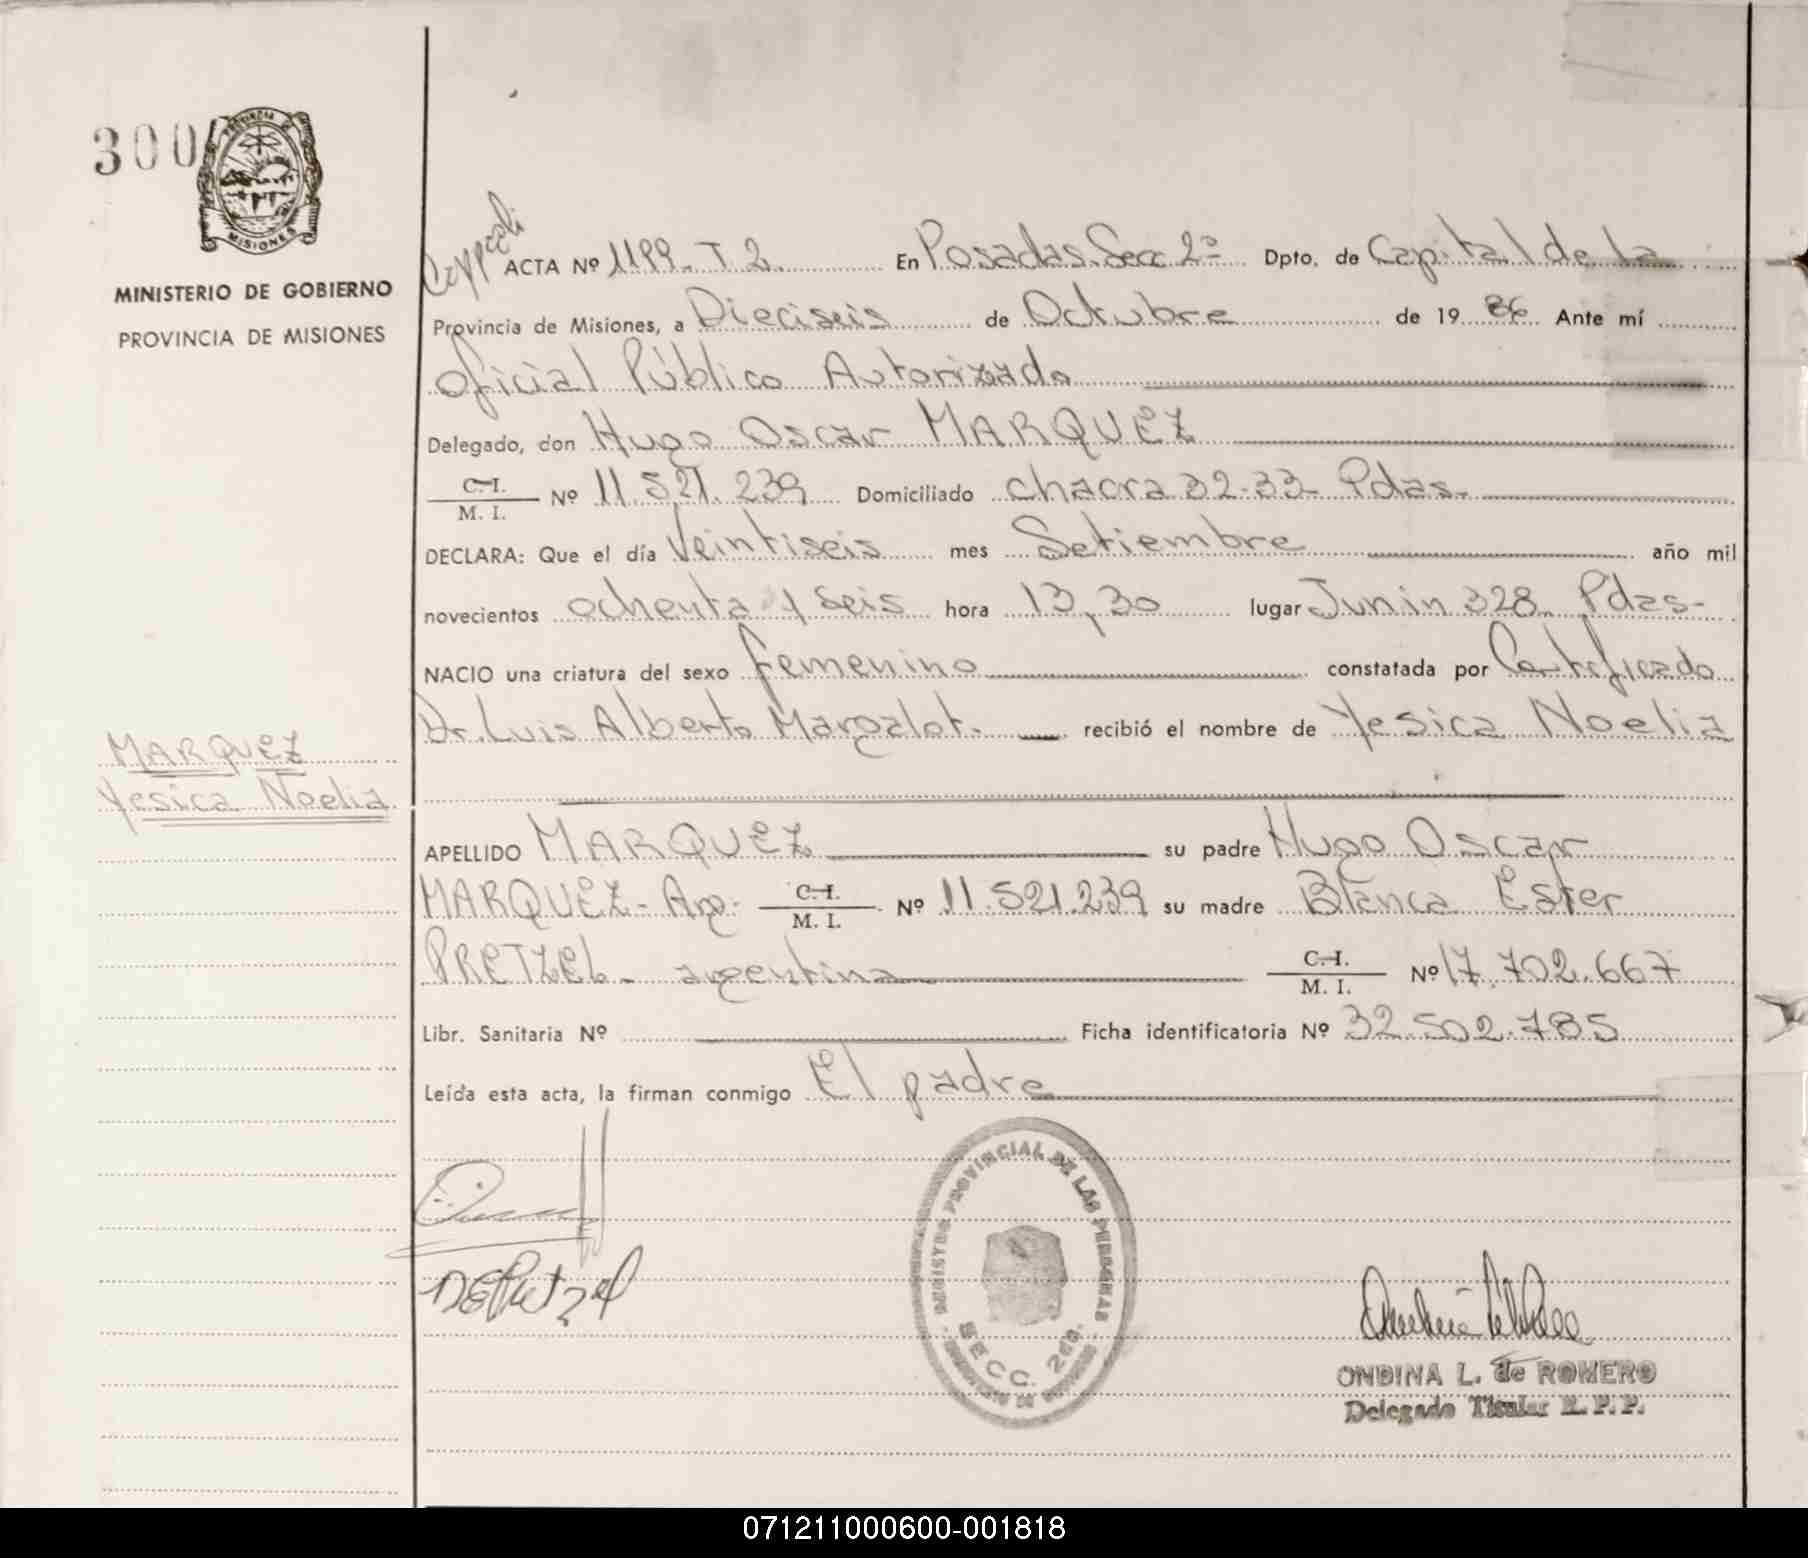 300
PROVINCIA DE
MISIONES
MINISTERIO DE GOBIERNO
PROVINCIA DE MISIONES
MARQUEZ
Yesica Noelia
ACTA Nº 1199. T 2. En Posadas. Secc 2ª Dpto. de Capital de la
Provincia de Misiones, a Dieciseis de Octubre de 19 86 Ante mí
Oficial Público Autorizado
Delegado, don Hugo Oscar MARQUEZ
C. I.
M. I. Nº 11.521.239 Domiciliado chacra 32-33- Pdas.
DECLARA: Que el día Veintiseis mes Setiembre año mil
novecientos ochenta y seis hora 13,30 lugar Junin 328 Pdas-
NACIO una criatura del sexo femenino constatada por Certificado
Dr. Luis Alberto Margalot. recibió el nombre de Yesica Noelia
APELLIDO MARQUEZ su padre Hugo Oscar
MARQUEZ - Arg. C. I. M. I. Nº 11.521.239 su madre Blanca Ester
PRETZEL - argentina C. I. M. I. Nº 17.702.667
Libr. Sanitaria Nº Ficha identificatoria Nº 32.502.785
Leída esta acta, la firman conmigo El padre
REGISTRO PROVINCIAL DE LAS PERSONAS
SECC. 2da.
ONDINA L. de ROMERO
Delegado Titular R. P. P.
071211000600-001818